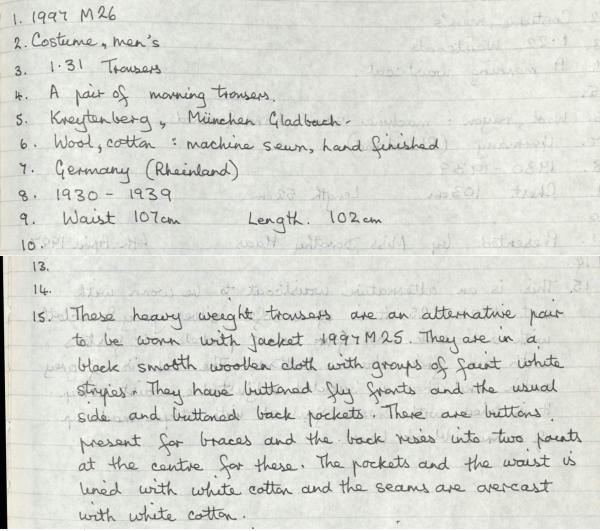 1. 1997 M26
2. Costume, men's
3. 1.31 Trousers
4. A pair of morning trousers.
5. Kreytenberg, München Gladbach.
6. Wool, cotton : machine sewn, hand finished
7. Germany (Rheinland)
8. 1930 - 1939
9. Waist 107cm Length. 102cm
10.
13.
14.
15. These heavy weight trousers are an alternative pair
to be worn with jacket 1997 M25. They are in a
black smooth woollen cloth with groups of faint white
stripes. They have buttoned fly fronts and the usual
side and buttoned back pockets. There are buttons
present for braces and the back rises into two points
at the centre for these. The pockets and the waist is
lined with white cotton and the seams are overcast
with white cotton.